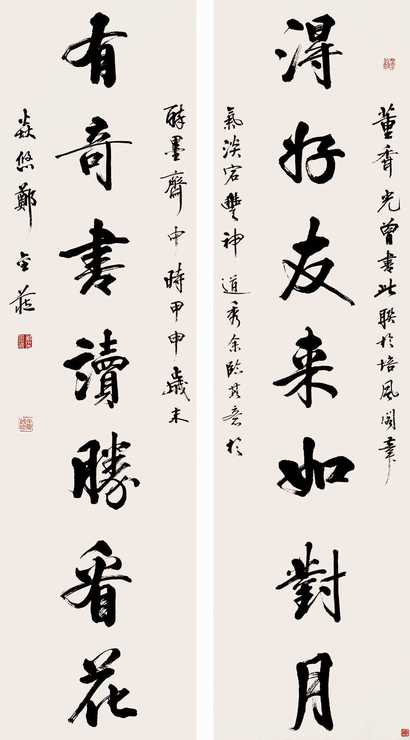 董香光曾書此聯於培風閣筆
得好友来如對月
氣淡宕豐神遒秀余臨其意於
醉墨齋中時甲申歲末
有奇書讀勝看花
鄭